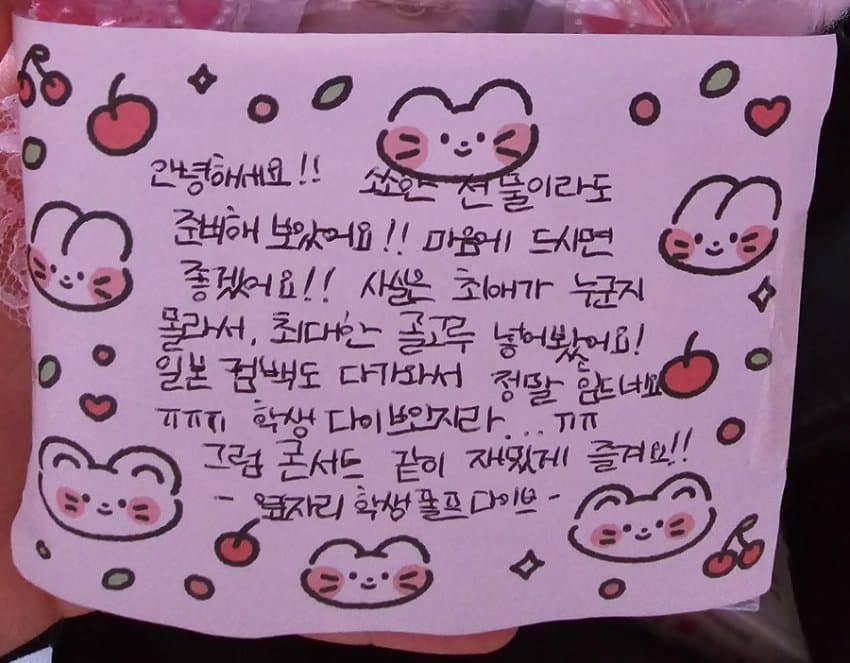 안녕해세요!! 쏘안 선물이라도
준비해 보았어요!! 마음에 드시면
좋겠어요!! 사실은 최애가 누군지
몰라서, 최대한 골고루 넣어봤어요!
일본 컴백도 다가와서 정말 힘드네요
ㅠㅠㅠ 학생 다이브인지라... ㅠㅠ
그럼 콘서트 같이 재밌게 즐겨요!!
- 옆자리 학생 풀프 다이브 -